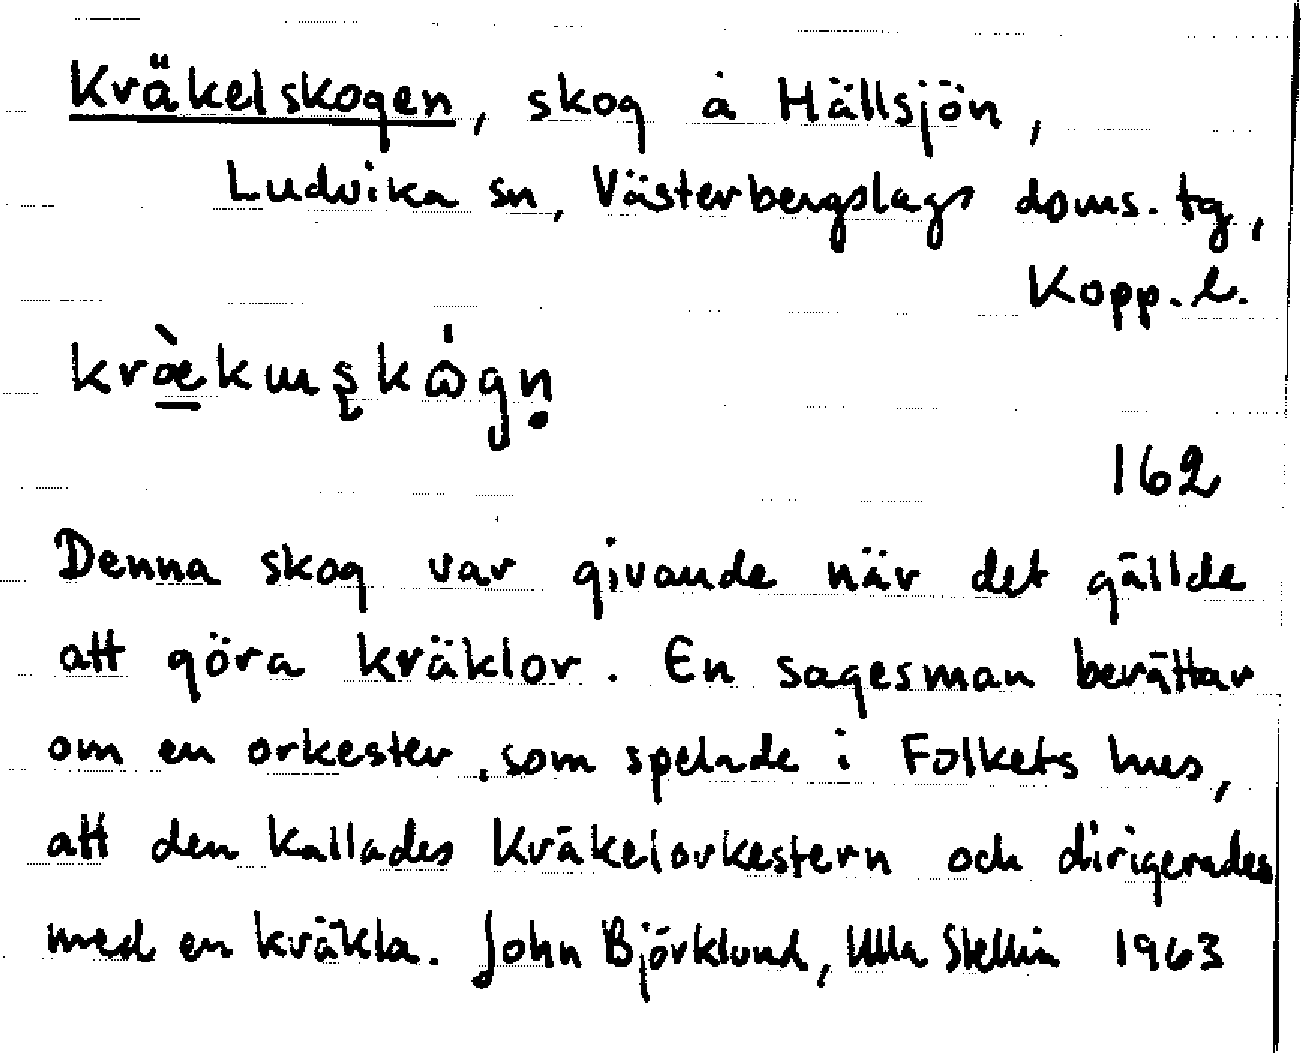 Kräkelskogen, skog å Hällsjön,
Ludvika sn, Västerbergslags doms. tg,
Kopp. l.
162
Denna skog var givande när det gällde
att göra kräklor. En sagesman berättar
om en orkester, som spelade i Folkets hus,
att den kallades Kräkelorkestern och dirigerades
med en kräkla. John Björklund, Ulla Stellin 1963